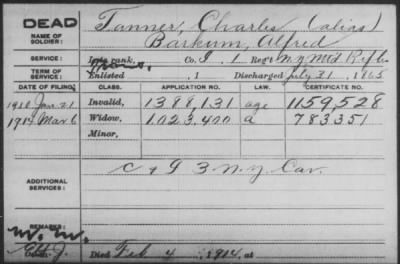 DEAD
NAME OF SOLDIER:
Tanner, Charles (alias)
Barkum, Alfred
SERVICE:
Late rank, Co. I, 1 Reg't N.Y. Mtd. Rifles
TERM OF SERVICE:
Enlisted , 1 Discharged July 31, 1865
DATE OF FILING: CLASS. APPLICATION NO. LAW. CERTIFICATE NO.
1910 Jan. 21 Invalid, 1388,131 age 1159,528
1914 Mar 6 Widow, 1.023,400 a 783351
Minor,
ADDITIONAL SERVICES:
C & G 3 N.Y. Cav.
REMARKS:
Died Feb. 4, 1914, at